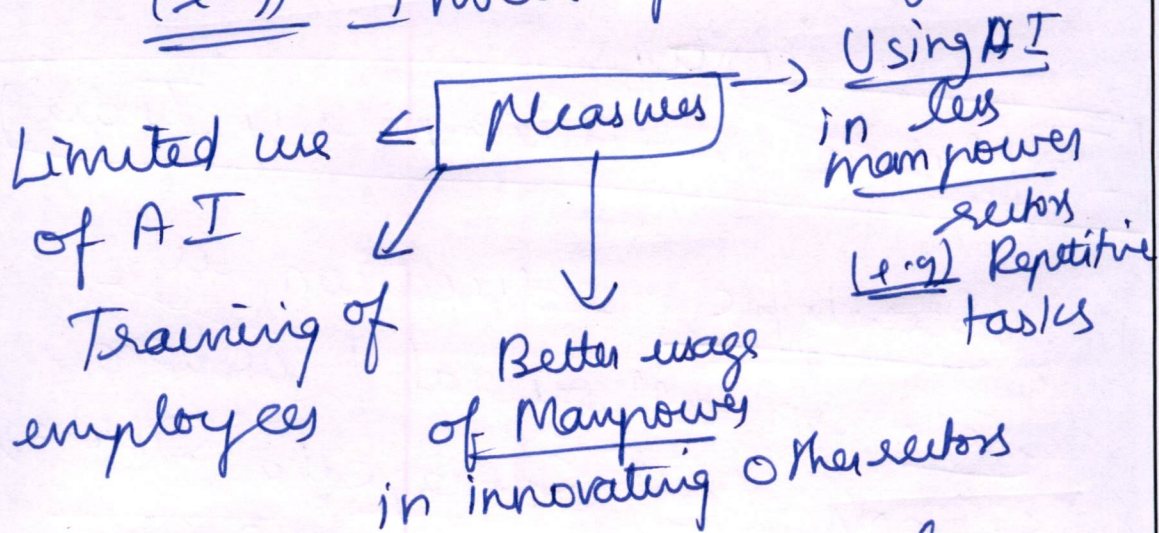 Measures
Limited use
of AI
Training of
employees
Better usage
of Manpower
in innovating other sectors
Using AI
in less
manpower
sectors
(e.g) Repetitive
tasks